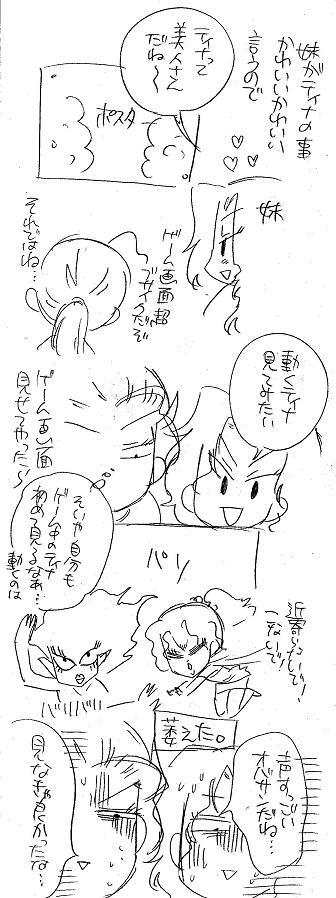 妹がティナの事
かわいいかわいい
言うので
ティナって
美人さん
だね〜
ポスター
妹
ゲーム画面超
ブサイクだぞ
それではね…
動くティナ
見てみたい
ゲーム画面
見せてやったら
そいや自分も
ゲーム中のティナ
初めて見るなぁ…
動くのは
パッ
近寄らないで!
来ないで!
バババババ
萎えた。
声すっごい
オバサン
だね…
見なきゃ良かったな…